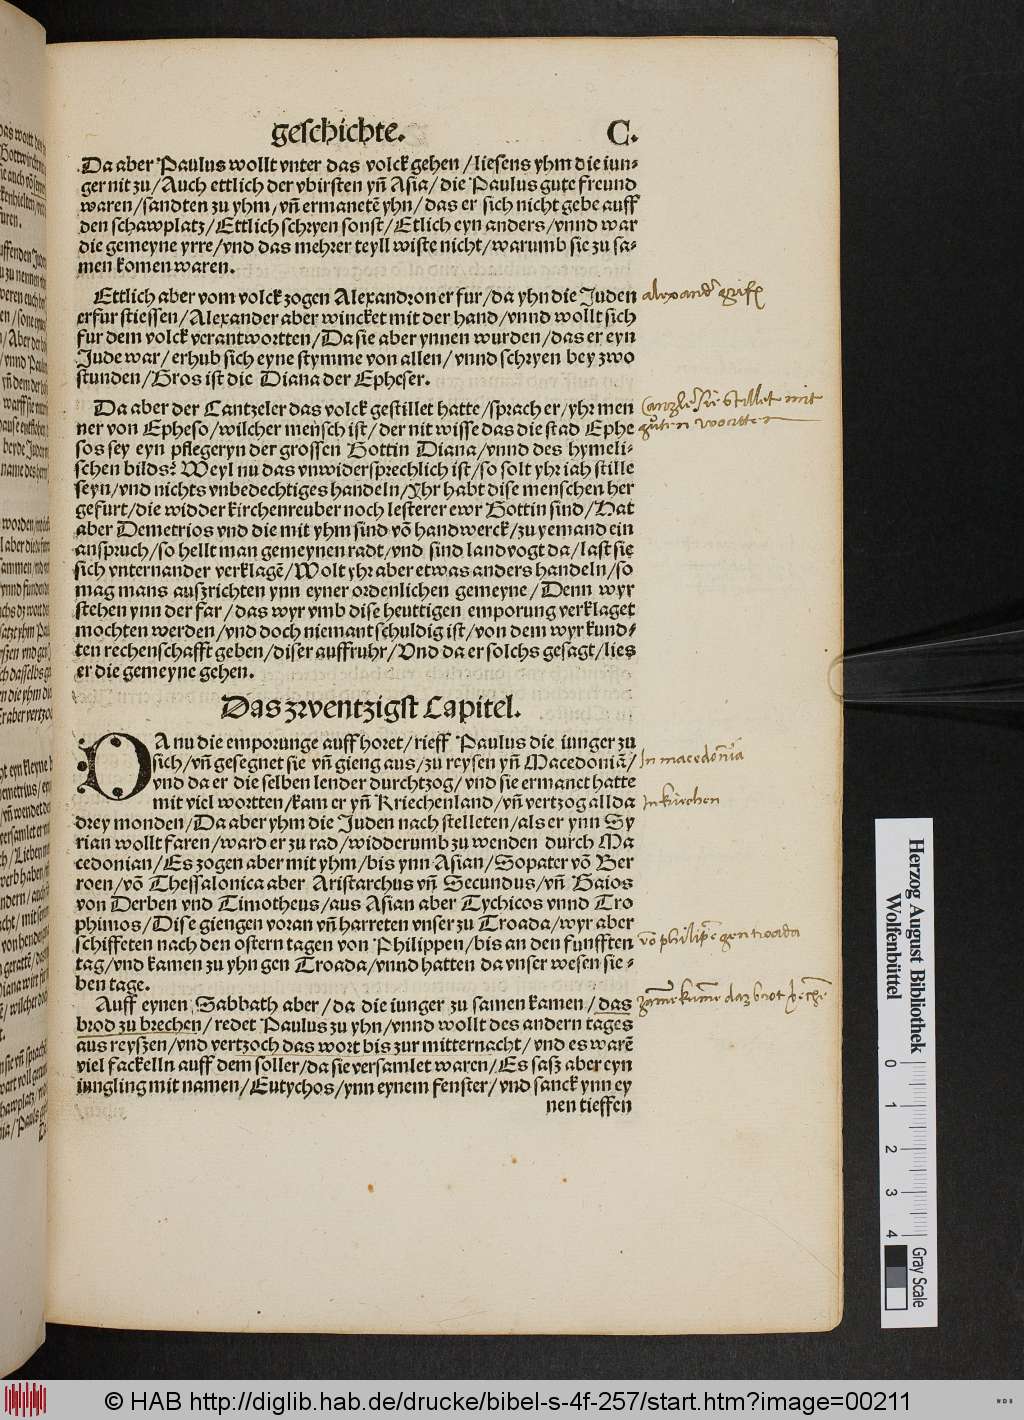 geschichte. C.
Da aber Paulus wollt vnter das volck gehen /liesens yhm die iun-
ger nit zu/ Auch ettlich der vbirsten yn̄ Asia/ die Paulus gute freund
waren/ sandten zu yhm/ vn̄ ermanetē yhn/ das er sich nicht gebe auff
den schawplatz/ Ettlich schryen sonst/ Etlich eyn anders/ vnnd war
die gemeyne yrre/ vnd das mehrer teyll wiste nicht/ warumb sie zu sa-
men komen waren.
Ettlich aber vom volck zogen Alexandron er fur/ da yhn die Juden
erfur stiessen/ Alexander aber wincket mit der hand/ vnnd wollt sich
fur dem volck verantwortten/ Da sie aber ynnen wurden/ das er eyn
Jude war/ erhub sich eyne stymme von allen/ vnnd schryen bey zwo
stunden/ Gros ist die Diana der Epheser.
Da aber der Cantzeler das volck gestillet hatte/ sprach er/ yhr men
ner von Epheso/ wilcher mensch ist/ der nit wisse das die stad Ephe
sos sey eyn pflegeryn der grossen Gottin Diana/ vnnd des hymeli-
schen bilds? Weyl nu das vnwidersprechlich ist/ so solt yhr iah stille
seyn/ vnd nichts vnbedechtiges handeln/ Yhr habt dise menschen her
gefurt/ die widder kirchenreuber noch lesterer ewr Gottin sind/ Hat
aber Demetrios vnd die mit yhm sind vō handwerck/ zu yemand ein
anspruch/ so hellt man gemeynen radt/ vnd sind landvogt da/ last sie
sich vnternander verklagē/ Wolt yhr aber etwas anders handeln/ so
mag mans auszrichten ynn eyner ordenlichen gemeyne/ Denn wyr
stehen ynn der far/ das wyr vmb dise heuttigen emporung verklaget
mochten werden/ vnd doch niemant schuldig ist/ von dem wyr kund-
ten rechenschafft geben/ diser auffruhr/ Vnd da er solchs gesagt/ lies
er die gemeyne gehen.
Das zwentzigst Capitel.
DA nu die emporunge auff horet/ rieff Paulus die iunger zu
sich/ vn̄ gesegnet sie vn̄ gieng aus/ zu reysen yn̄ Macedoniā/
vnd da er die selben lender durchtzog/ vnd sie ermanet hatte
mit viel wortten/ kam er yn̄ Kriechenland/ vn̄ vertzog allda
drey monden/ Da aber yhm die Juden nach stelleten/ als er ynn Sy
rian wollt faren/ ward er zu rad/ widderumb zu wenden durch Ma
cedonian/ Es zogen aber mit yhm/ bis ynn Asian/ Sopater vō Ber
roen/ vō Thessalonica aber Aristarchus vn̄ Secundus/ vn̄ Gaios
von Derben vnd Timotheus/ aus Asian aber Tychicos vnnd Tro
phimos/ Dise giengen voran vn̄ harreten vnser zu Troada/ wyr aber
schiffeten nach den ostern tagen von Philippen/ bis an den funfften
tag/ vnd kamen zu yhn gen Troada/ vnnd hatten da vnser wesen sie-
ben tage.
Auff eynen Sabbath aber/ da die iunger zu samen kamen/ das
brod zu brechen/ redet Paulus zu yhn/ vnnd wollt des andern tages
aus reyszen/ vnd vertzoch das wort bis zur mitternacht/ vnd es warē
viel fackelln auff dem soller/ da sie versamlet waren/ Es sasz aber eyn
iungling mit namen/ Eutychos/ ynn eynem fenster/ vnd sanck ynn ey
nen tieffen
Canzler sie stillet mit
guten wortten
In macedonia
In kirchen
vō philipe gen troada
Herzog August Bibliothek
Wolfenbüttel
0 1 2 3 4
Gray Scale
© HAB http://diglib.hab.de/drucke/bibel-s-4f-257/start.htm?image=00211